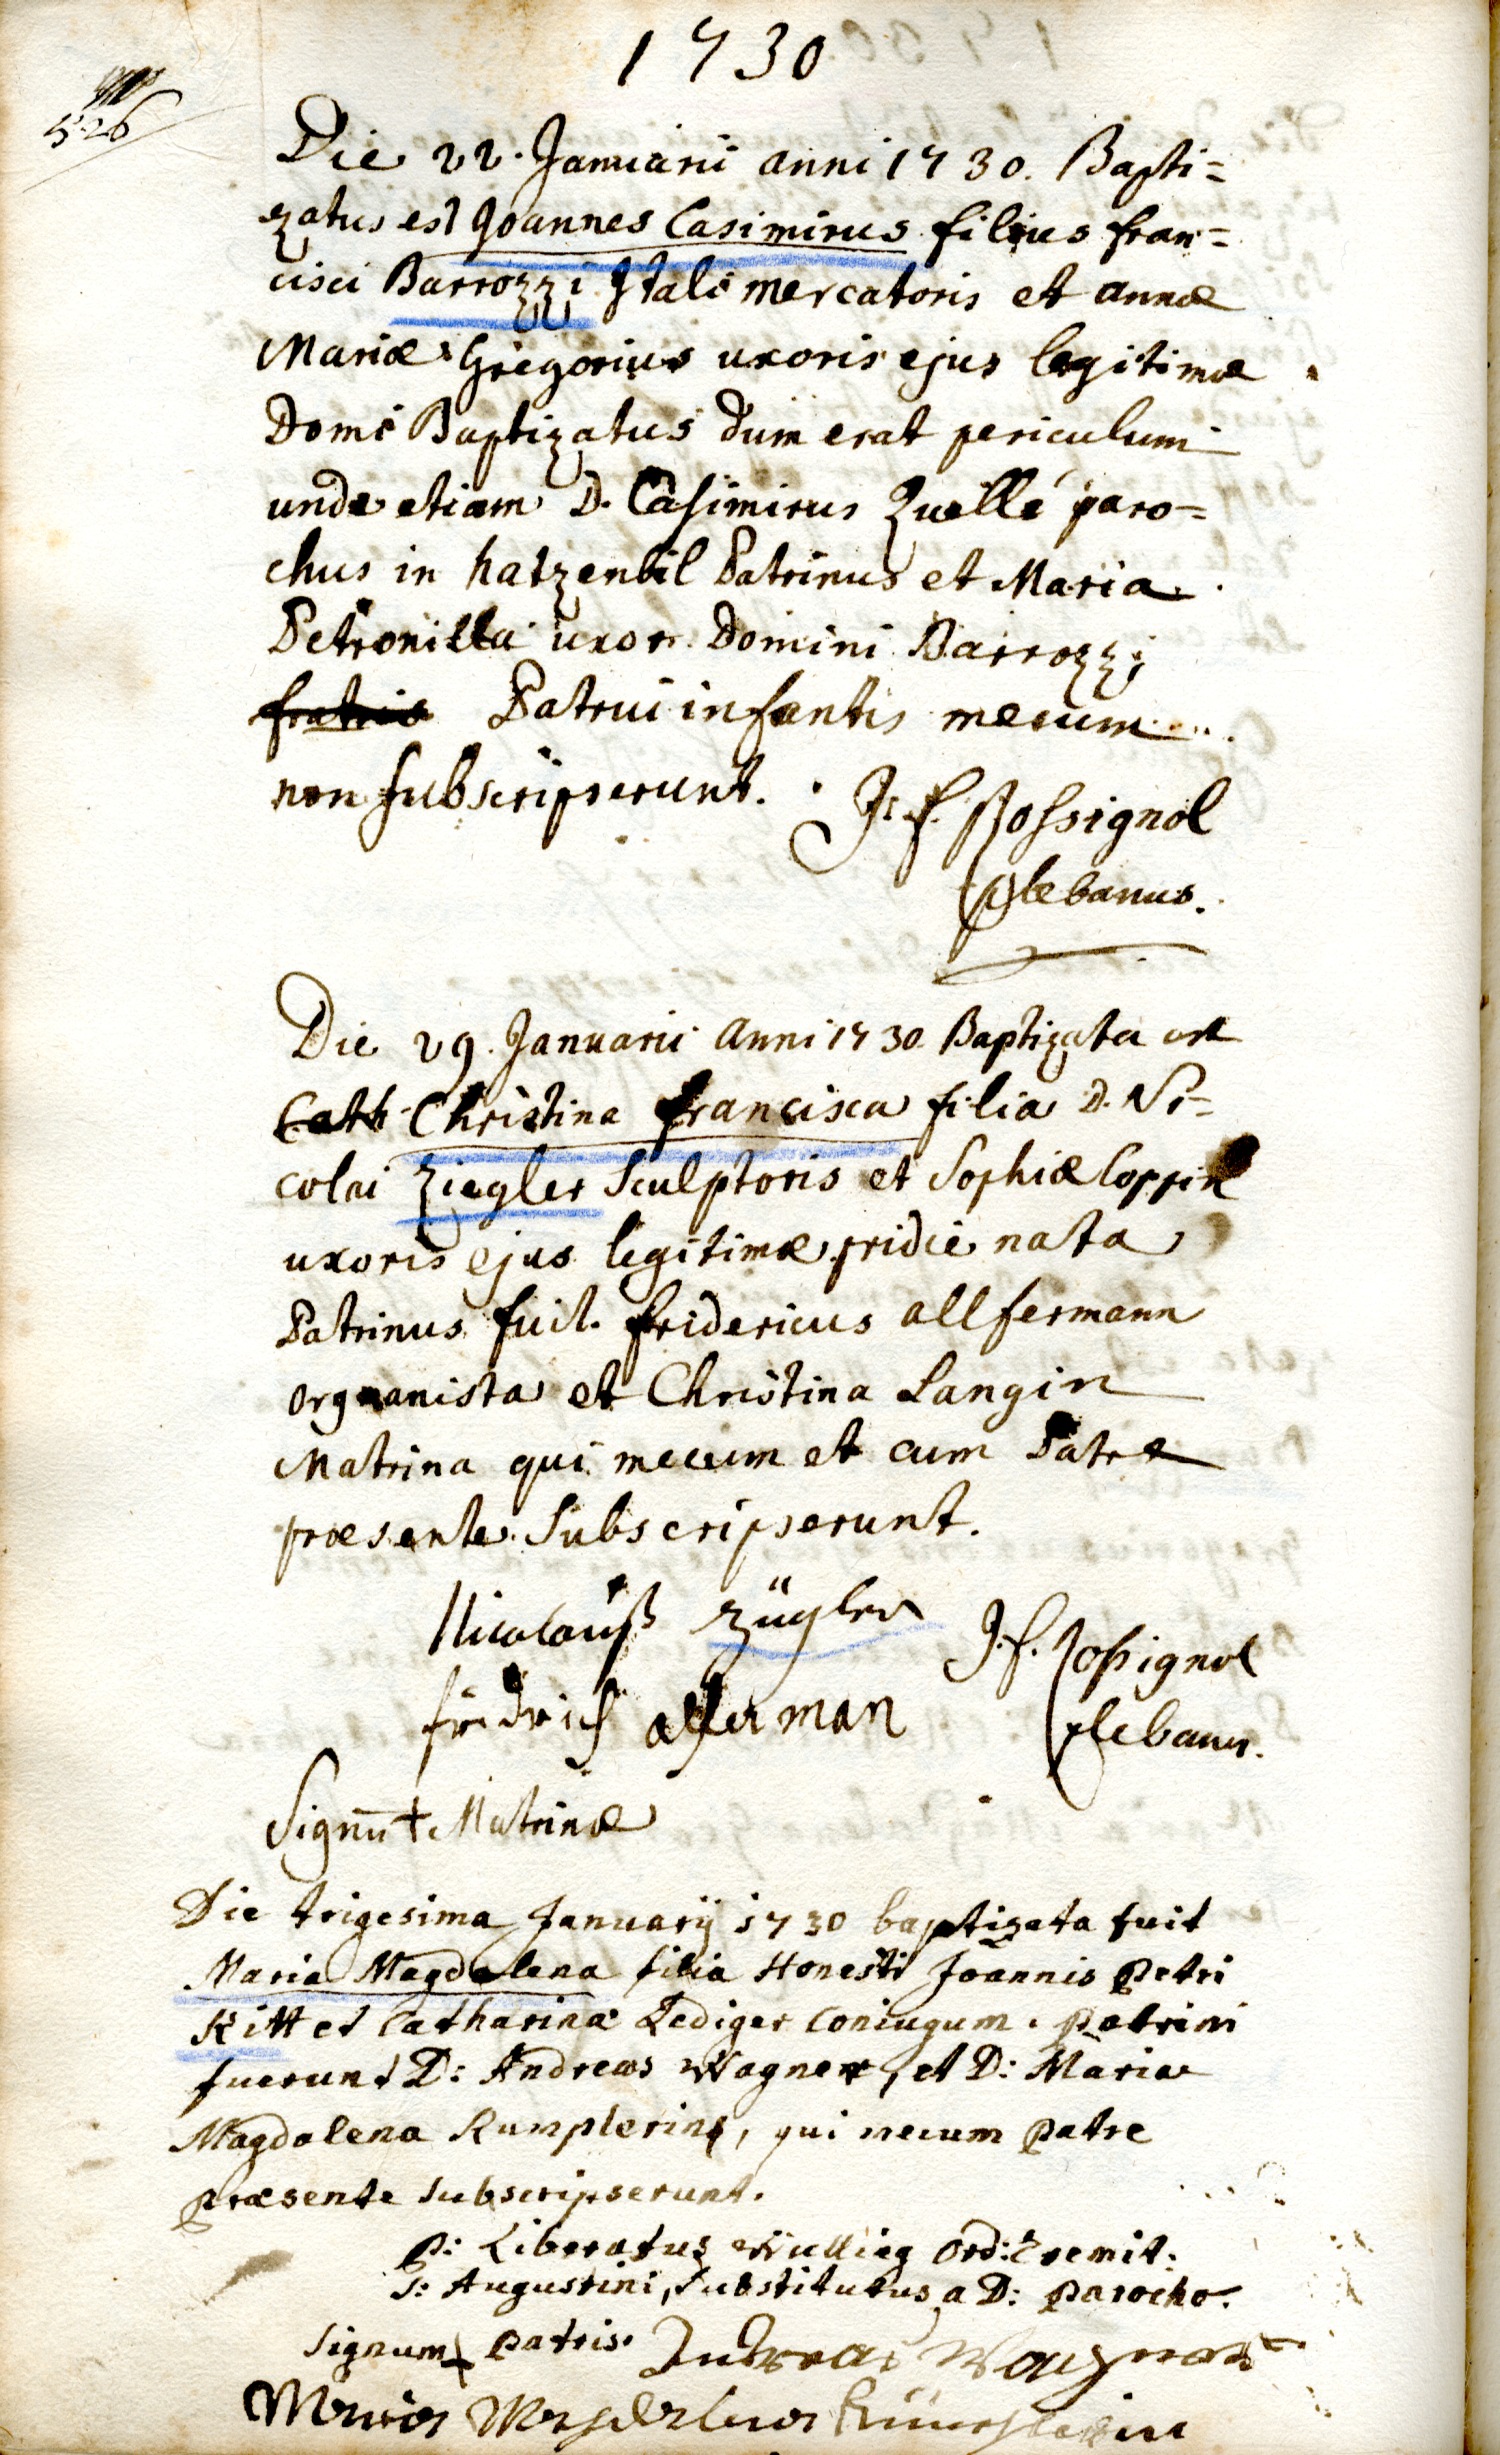 1730
526
Die 22. Januarii anni 1730. Bapti=
zatus est Joannes Casimirus filius fran=
cisci Barrozzi Itali mercatoris et annæ
Mariæ Gregorius uxoris ejus legitimæ
Domi Baptizatus dum erat periculum
unde etiam D. Casimirus Quellé paro=
chus in hatzenbil Patrinus et Maria
Petronilla uxor Domini Barrozzi
fratris Patrui infantis mecum
non subscripserunt. J. f. Rossignol
plebanus.
Die 29. Januarii Anni 1730 Baptizata est
Cath Christina francisca filia D. Ni=
colai Ziegler Sculptoris et Sophiæ Coppin
uxoris ejus legitimæ pridie nata
Patrinus fuit fridericus allfermann
organista et Christina Langin
Matrina qui mecum et cum Patre
præsente Subscripserunt.
Nicolauß Zügler J. f. Rossignol
fridrich alferman plebanus.
Signū + Matrinæ
Die trigesima Januarij 1730 baptizata fuit
Maria Magdalena filia Honesti Joannis Petri
Kitt et Catharinæ Lediger Coniugum. Patrini
fuerunt D: Andreas Wagner, et D: Maria
Magdalena Rumplerins, qui mecum Patre
Præsente Subscripserunt.
P: Liberatus Wüllieg Ord: Eremit:
S: Augustini, Substitutus a D: Parocho.
Signum + Patris. Andreas Wagner
Maria Magdalena